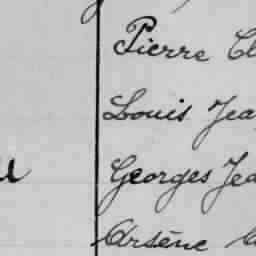 Pierre Cl
Louis Jea
u Georges Jea
Arsène